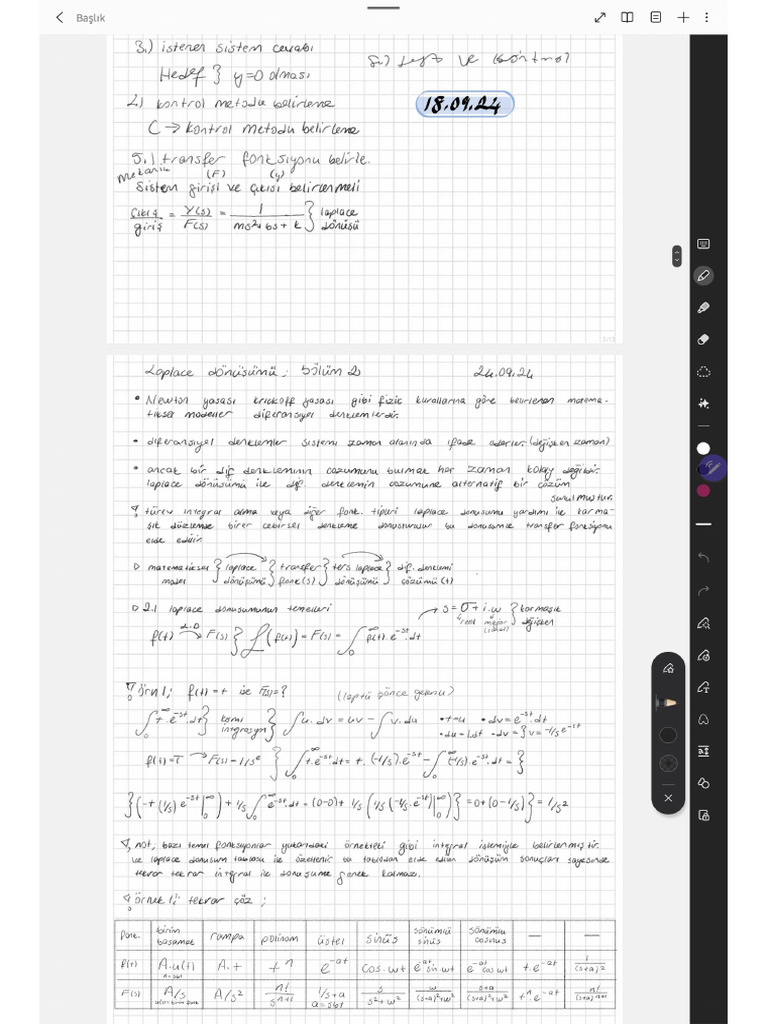 Başlık
3.) istenen sistem cevabı
Hedef } y=0 olması
8.) test ve kontrol
4.) kontrol metodu belirleme
18.09.24
C → kontrol metodu belirleme
5.) transfer fonksiyonu belirle.
mekanik (F) (y)
sistem girişi ve çıkışı belirlenmeli
çıkış/giriş = Y(s)/F(s) = 1/(ms²+bs+k) } laplace dönüşü
Laplace dönüşümü; Bölüm 2 24.09.24
• Newton yasası krickoff yasası gibi fizik kurallarına göre belirlenen matema-
tiksel modeller diferansiyel denklemlerdir.
• diferansiyel denklemler sistemi zaman alanında ifade ederler. (değişken zaman)
• ancak bir dif denkleminin cozumunu bulmak her zaman kolay değildir.
laplace dönüşümü ile dif. denklemin cozumune alternatif bir çözüm
sunulmuştur.
türev integral alma veya diğer fonk. tipleri laplace donusumu yardımı ile karma-
şık düzlemde birer cebirsel denkleme donusturulur bu donusumle transfer fonksiyonu
elde edilir
▷ matematiksel model } laplace dönüşümü } transfer fonk(s) } ters laplace dönüşümü } dif. denklemi çözümü (t)
▷ 2.1 laplace donusumunun temelleri → s = σ + i.w } karmaşık değişken
f(t) → F(s) } ℒ(f(t)) = F(s) = ∫₀^∞ f(t).e^-st.dt
örn1; f(t) = t ise F(s)=?
∫₀^∞ t.e^-st.dt } kısmi integrasyon } ∫u.dv = uv - ∫v.du • t=u • dv=e^-st.dt
• du=1.dt • dv=} v=-1/s e^-st
∫₀^∞ t.e^-st.dt = t.(-1/s).e^-st - ∫₀^∞(-1/s).e^-st.dt = }
}(-t(1/s)e^-st|₀^∞) + 1/s∫₀^∞ e^-st.dt = (0-0)+ 1/s(1/s(-1/s.e^-st)|₀^∞)} = 0+(0-1/s)} = 1/s²
not; bazı temel fonksiyonlar yukarıdaki örnekteki gibi integral işlemiyle belirlenmiştir.
ve laplace donusum tablosu ile özetlenir. bu tablodan elde edilen dönüşüm sonuçları sayesinde
tekrar tekrar integral ile donusume gerek kalmaz.
örnek 1; tekrar çöz;
fonk. birim basamak rampa polinom üstel sinüs sönümlü sinüs sönümlü cosinus — —
f(t) A.u(t) A.t t^n e^-at cos.wt e^-at sin wt e^-at cos wt t.e^-at 1/(s+a)²
F(s) A/s A/s² n!/s^n+1 1/s+a s/s²+w² w/(s+a)²+w² s+a/(s+a)²+w² t^n.e^-at n!/(s+a)^n+1